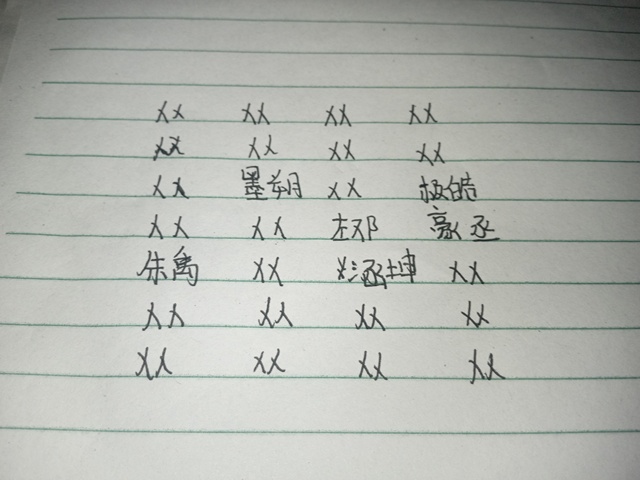 xx xx xx xx
xx xx xx xx
xx 墨朔 xx 极皓
xx xx 赵邓 高丞
朱禹 xx 坤 xx
xx xx xx xx
xx xx xx xx